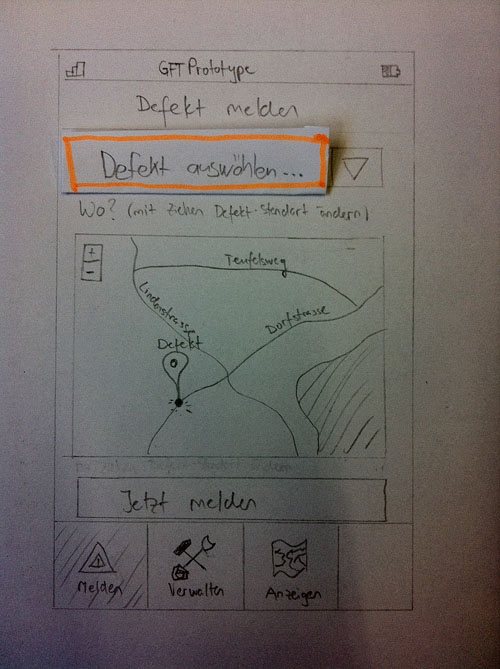 GFT Prototype
Defekt melden
Defekt auswählen...
Wo? (mit ziehen Defekt-Standort ändern)
+
-
Teufelsweg
Lindenstrasse
Dorfstrasse
Defekt
Jetzt melden
Melden
Verwalten
Anzeigen